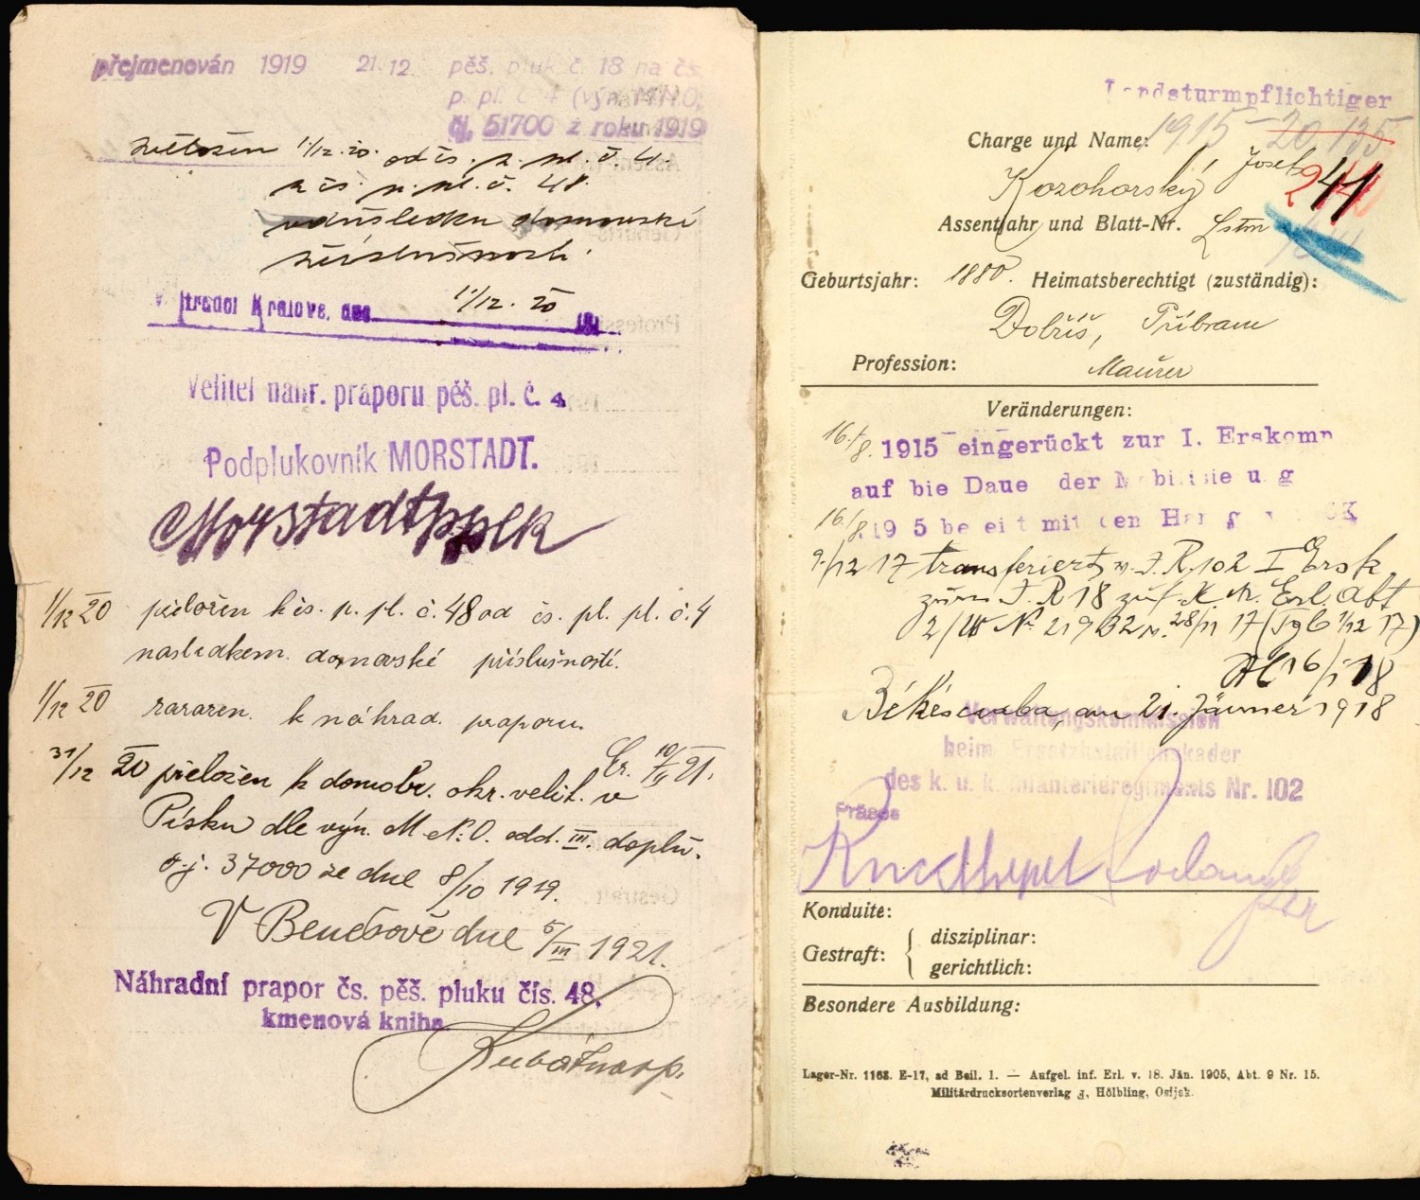 přejmenován 1919 21.12. pěš. pluk č. 18 na čs.
p. pl. č. 4 (výn. MNO,
čj. 51700 z roku 1919
1/12.20. od čs. p. pl. č. 4.
k čs. p. pl. č. 48.
důsledku domovské
V Hradci Králové, dne 1/12. 20 191
Velitel náhr. praporu pěš. pl. č. 4
Podplukovník MORSTADT.
Morstadt pplk
1/12 20 přeložen k čs. p. pl. č. 48 od čs. pl. pl. č. 4
následkem domovské příslušnosti.
1/12 20 zařazen k náhrad. praporu.
31/12 20 přeložen k domobr. okr. velit. v
Písku dle výn. M.N.O. odd. III. doplň.
č.j. 37000 ze dne 8/10 1919.
V Benešově dne 5/III 1921.
Náhradní prapor čs. pěš. pluku čís. 48.
kmenová kniha
Landsturmpflichtiger
Charge und Name: 1915 - 20 135
Kozohorský Josef 241
Assentjahr und Blatt-Nr. Lstm
Geburtsjahr: 1880. Heimatsberechtigt (zuständig):
Dobříš, Příbram
Profession: Maurer
Veränderungen:
16./8. 1915 eingerückt zur I. Erskomp
auf die Daue der M bi i ie u g
16./8. 19 5 be ei t mit den
9/12 17 transferiert v. I.R. 102 I Ersk.
zum I.R 18 K.M. Erl. Abt
2/W No 21932 v. 28/11 17 (
16/1 18
Békéscsaba, am 21. Jänner 1918
Verwaltungskommission
beim Ersatzbataillonskader
des k. u. k. Infanterieregiments Nr. 102
Präses
Konduite:
Gestraft: { disziplinar:
gerichtlich:
Besondere Ausbildung:
Lager-Nr. 1168. E-17, ad Beil. 1. — Aufgel. inf. Erl. v. 18. Jän. 1905, Abt. 9 Nr. 15.
Militärdrucksortenverlag J. Hölbling, Osijek.